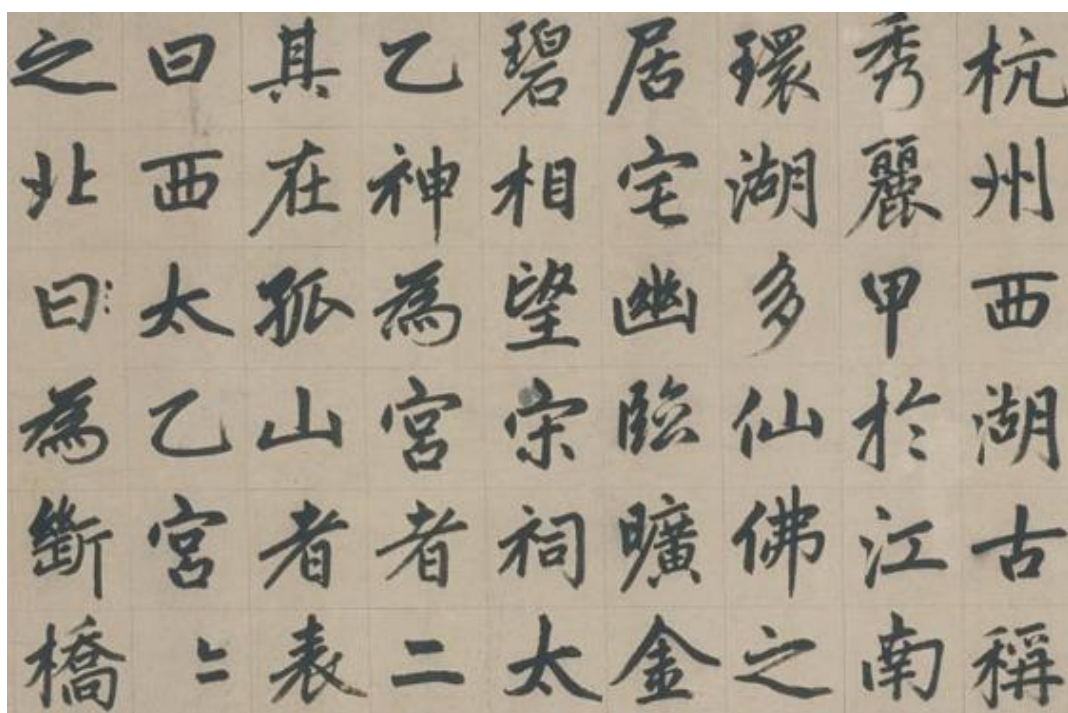 杭州西湖古稱
秀麗甲於江南
環湖多仙佛之
居宅幽臨曠金
碧相望宋祠太
乙神為宮者二
其在孤山者表
曰西太乙宮〻
之北曰為斷橋